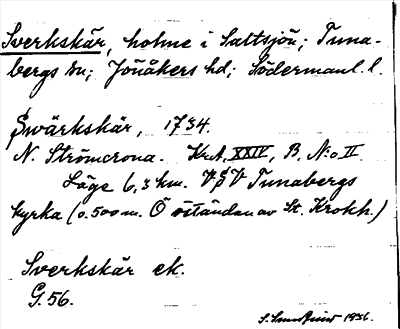 Sverkskär, holme i Saltsjön; Tuna-
bergs sn; Jönåkers hd; Södermanl. l.
Swärkskär, 1734.
N. Strömcrona. Kr.A. XXIV, B, N:o II
Läge 6,3 km. VSV Tunabergs
kyrka (0.500 m. Ö öständan av St. Krokh.)
Sverkskär ek.
G. 56.
1936.